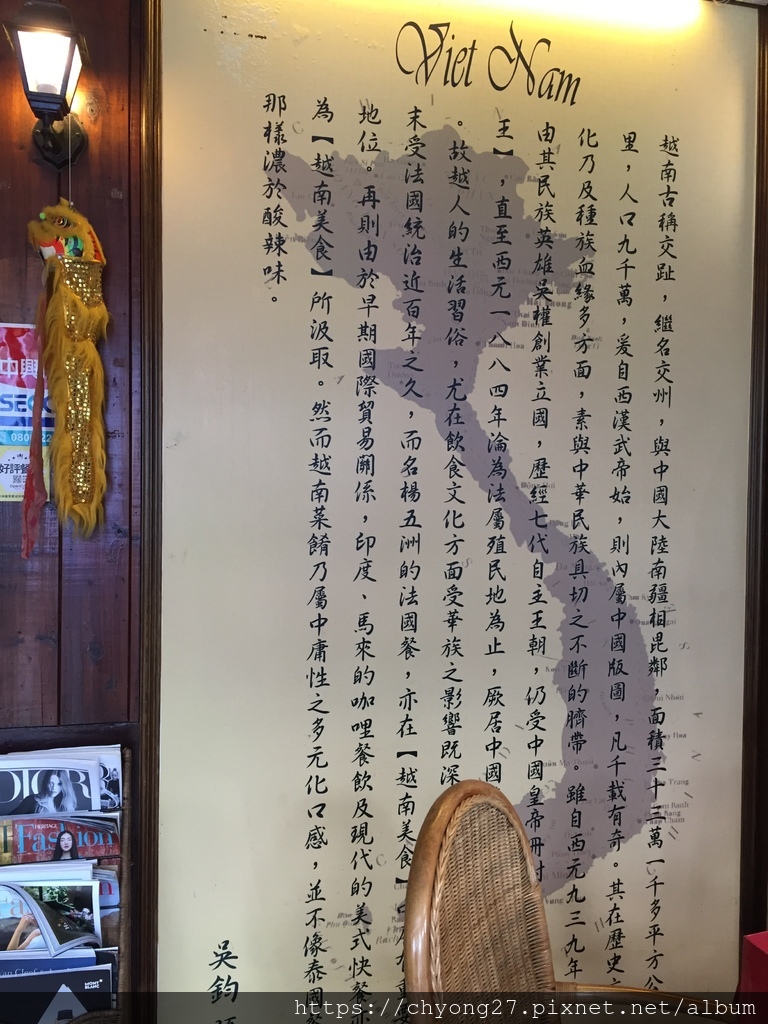 Viet Nam
越南古稱交趾，繼名交州，與中國大陸南疆相毘鄰，面積三十三萬一千多平方公
里，人口九千萬，爰自西漢武帝始，則內屬中國版圖，凡千載有奇。其在歷史
化乃及種族血緣多方面，素與中華民族具切之不斷的臍帶。雖自西元九三九年
由其民族英雄吳權創業立國，歷經七代自主王朝，仍受中國皇帝冊封
王】，直至西元一八八四年淪為法屬殖民地為止，厥居中國
。故越人的生活習俗，尤在飲食文化方面受華族之影響既深
末受法國統治近百年之久，而名楊五洲的法國餐，亦在【越南美食】
地位。再則由於早期國際貿易關係，印度、馬來的咖哩餐飲及現代的美式快餐亦
為【越南美食】所汲取。然而越南菜餚乃屬中庸性之多元化口感，並不像泰國
那樣濃於酸辣味。
吳鈞
中興
0800
好評
Fashion
MONT
BLANC
https://chyong27.pixnet.net/album